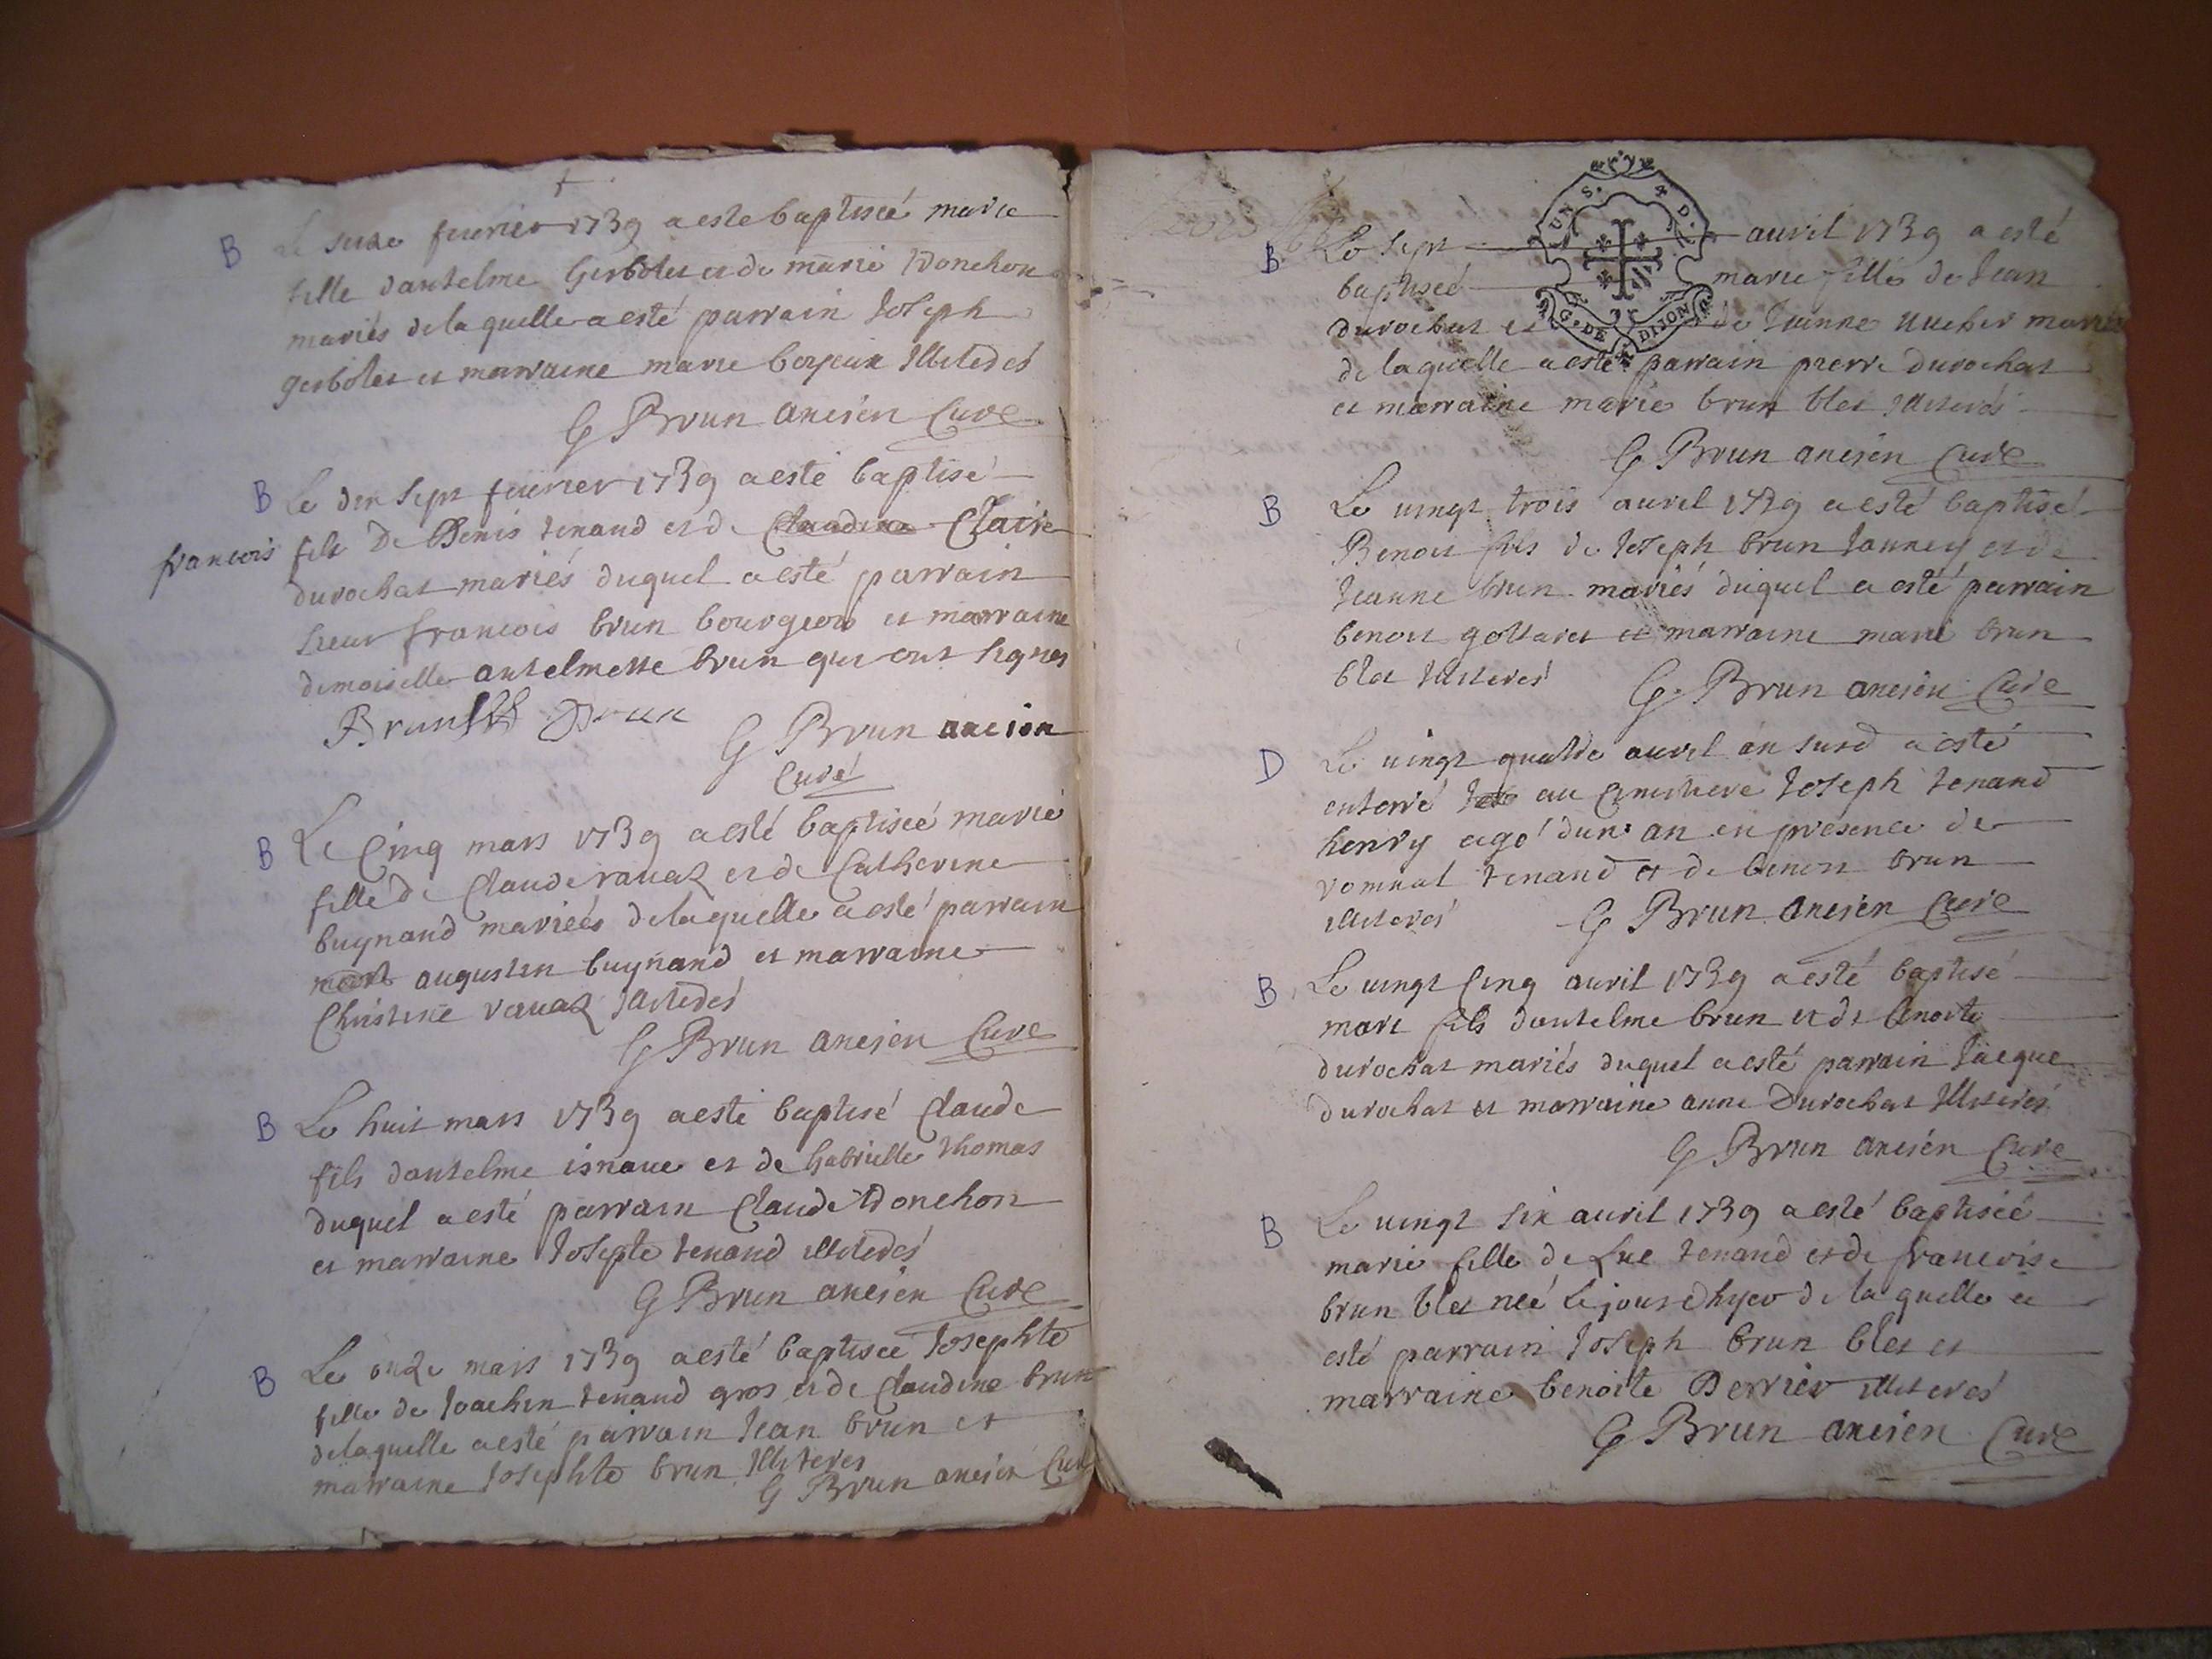 B Le seize feurier 1739 a este baptiseé marie
fille dantelme Gerbolet et de marie Donchon
mariés de laquelle a esté parrain Joseph
gerbolet et marraine marie illiterés
G Brun ancien Curé
B Le dix sept feurier 1739 a esté baptisé
francois fils De Denis tenand et de Claudine Claire
durochat mariés duquel a esté parrain
sieur francois brun bourgeois et marraine
demoiselle antelmette brun qui ont signés
Brun Brun
G Brun ancien
Curé
B Le Cinq mars 1739 a esté baptiseé marie
fille de Claude rauaz et de Catherine
buynand marieés de laquelle a esté parrain
augustin buynand et marraine
Christine rauaz illiterés
G Brun ancien Curé
B Le huit mars 1739 a esté baptisé Claude
fils dantelme et de Gabrielle thomas
duquel a esté parrain Claude Donchon
et marraine Josepte tenand illiterés
G Brun ancien Curé
B Le onze mars 1739 a esté baptiseé Josephte
fille de Joachin tenand gros et de Claudine brun
de laquelle a esté parrain Jean brun et
marraine Josephte brun illiteres
G Brun ancien Curé
UN S. 4 D.
G. DE DIJON
B Le sept auril 1739 a esté
baptiseé marie fille de Jean
durochat et de Jeanne mariés
de laquelle a esté parrain pierre durochat
et marraine marie brun blet illiterés
G Brun ancien Curé
B Le uingt trois auril 1739 a esté baptisé
Benoit fils de Joseph brun Janney et de
Jeanne brun mariés duquel a esté parrain
benoit gottaret et marraine marie brun
blet illiterés
G Brun ancien Curé
D Le uingt quatre auril an susd a esté
enterré au Cimetiere Joseph tenand
henry agé dun an en presence de
romual tenand et de benoit brun
illiterés
G Brun ancien Curé
B Le uingt Cinq auril 1739 a esté baptisé
marc fils dantelme brun et de benoite
durochat mariés duquel a esté parrain Jacque
durochat et marraine anne Durochat illiterés
G Brun ancien Curé
B Le uingt six auril 1739 a esté baptiseé
marie fille de Luc tenand et de francoise
brun blet neé le jour dhyer de laquelle a
esté parrain Joseph brun blet et
marraine benoite Perrier illiterés
G Brun ancien Curé